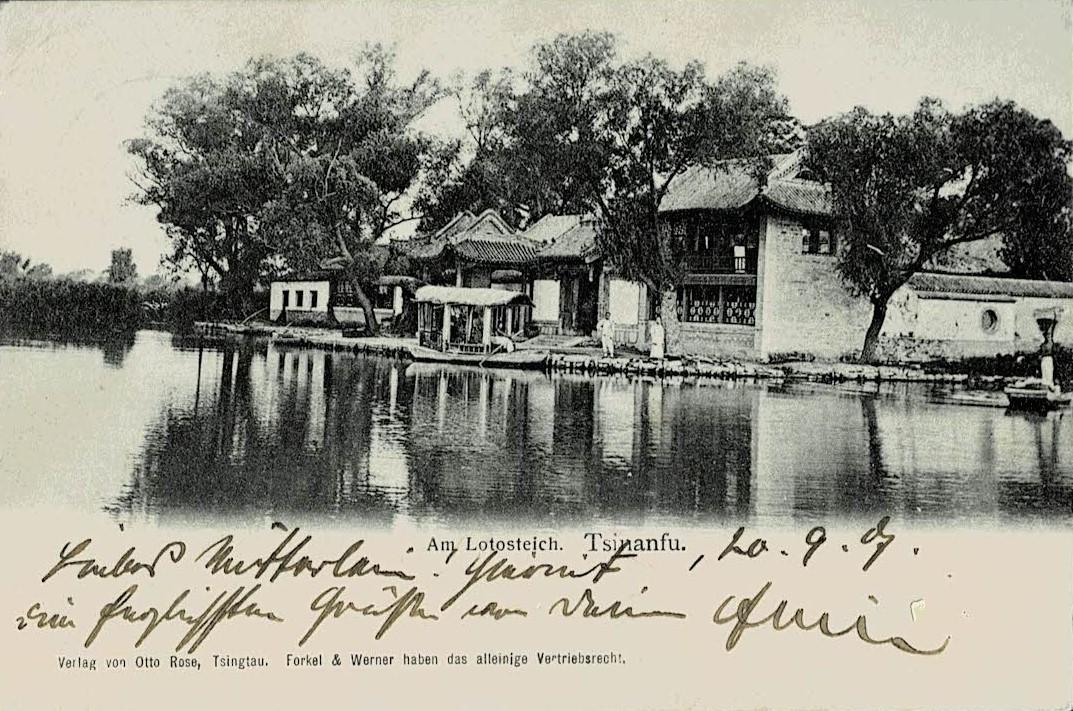 Am Lotosteich. Tsinanfu.
Liebes Mütterlein! Hiermit , 20. 9. 01.
die herzlichsten Grüße von Deiner
Verlag von Otto Rose, Tsingtau. Forkel & Werner haben das alleinige Vertriebsrecht.